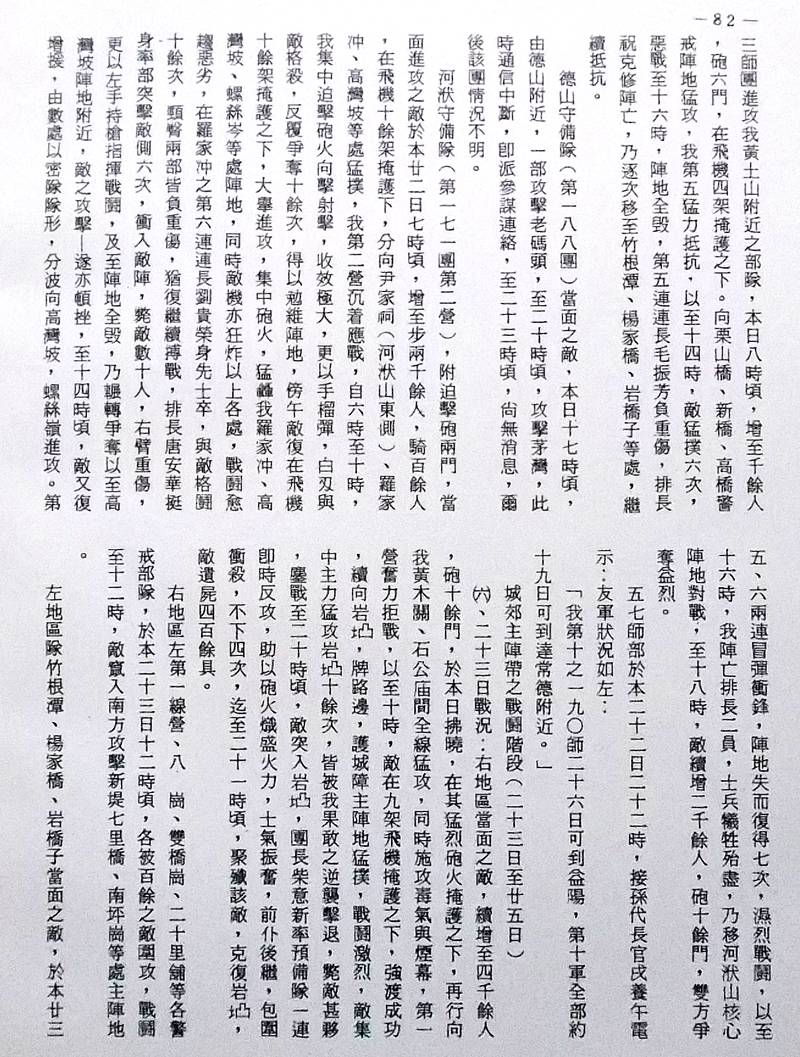 －82－
三師團進攻我黃土山附近之部隊，本日八時頃，增至千餘人
，砲六門，在飛機四架掩護之下。向栗山橋、新橋、高橋警
戒陣地猛攻，我第五猛力抵抗，以至十四時，敵猛撲六次，
惡戰至十六時，陣地全毀，第五連連長毛振芳負重傷，排長
祝克修陣亡，乃逐次移至竹根潭、楊家橋、岩橋子等處，繼
續抵抗。
德山守備隊（第一八八團）當面之敵，本日十七時頃，
由德山附近，一部攻擊老碼頭，至二十時頃，攻擊茅灣，此
時通信中斷，卽派參謀連絡，至二十三時頃，尙無消息，爾
後該團情況不明。
河洑守備隊（第一七一團第二營），附迫擊砲兩門，當
面進攻之敵於本廿二日七時頃，增至步兩千餘人，騎百餘人
，在飛機十餘架掩護下，分向尹家祠（河洑山東側）、羅家
冲、高灣坡等處猛撲，我第二營沉着應戰，自六時至十時，
我集中迫擊砲火向擊射擊，收效極大，更以手榴彈，白刃與
敵格殺，反覆爭奪十餘次，得以勉維陣地，傍午敵復在飛機
十餘架掩護之下，大舉進攻，集中砲火，猛轟我羅家冲、高
灣坡、螺絲岑等處陣地，同時敵機亦狂炸以上各處，戰鬪愈
趨惡劣，在羅家冲之第六連連長劉貴榮身先士卒，與敵格鬪
十餘次，頸臀兩部皆負重傷，猶復繼續搏戰，排長唐安華挺
身率部突擊敵側六次，衝入敵陣，斃敵數十人，右臂重傷，
更以左手持槍指揮戰鬪，及至陣地全毀，乃輾轉爭奪以至高
灣坡陣地附近，敵之攻擊—遂亦頓挫，至十四時頃，敵又復
增援，由數處以密隊隊形，分波向高灣坡，螺絲嶺進攻。第
五、六兩連冒彈衝鋒，陣地失而復得七次，濕烈戰鬪，以至
十六時，我陣亡排長二員，士兵犧牲殆盡，乃移河洑山核心
陣地對戰，至十八時，敵續增二千餘人，砲十餘門，雙方爭
奪益烈。
五七師部於本二十二日二十二時，接孫代長官戌養午電
示：友軍狀況如左：
「我第十之一九〇師二十六日可到益陽，第十軍全部約
十九日可到達常德附近。」
城郊主陣帶之戰鬪階段（二十三日至廿五日）
㈥、二十三日戰況：右地區當面之敵，續增至四千餘人
，砲十餘門，於本日拂曉，在其猛烈砲火掩護之下，再行向
我黃木關、石公庙間全線猛攻，同時施攻毒氣與煙幕，第一
營奮力拒戰，以至十時，敵在九架飛機掩護之下，強渡成功
，續向岩凸，牌路邊，護城障主陣地猛撲，戰鬪激烈，敵集
中主力猛攻岩凸十餘次，皆被我果敢之逆襲擊退，斃敵甚夥
，鏖戰至二十時頃，敵突入岩凸，團長柴意新率預備隊一連
卽時反攻，助以砲火熾盛火力，士氣振奮，前仆後繼，包圍
衝殺，不下四次，迄至二十一時頃，聚殲該敵，克復岩凸，
敵遺屍四百餘具。
右地區左第一線營、八　崗、雙橋崗、二十里舖等各警
戒部隊，於本二十三日十二時頃，各被百餘之敵圍攻，戰鬪
至十二時，敵竄入南方攻擊新堤七里橋、南坪崗等處主陣地
。
左地區隊竹根潭、楊家橋、岩橋子當面之敵，於本廿三